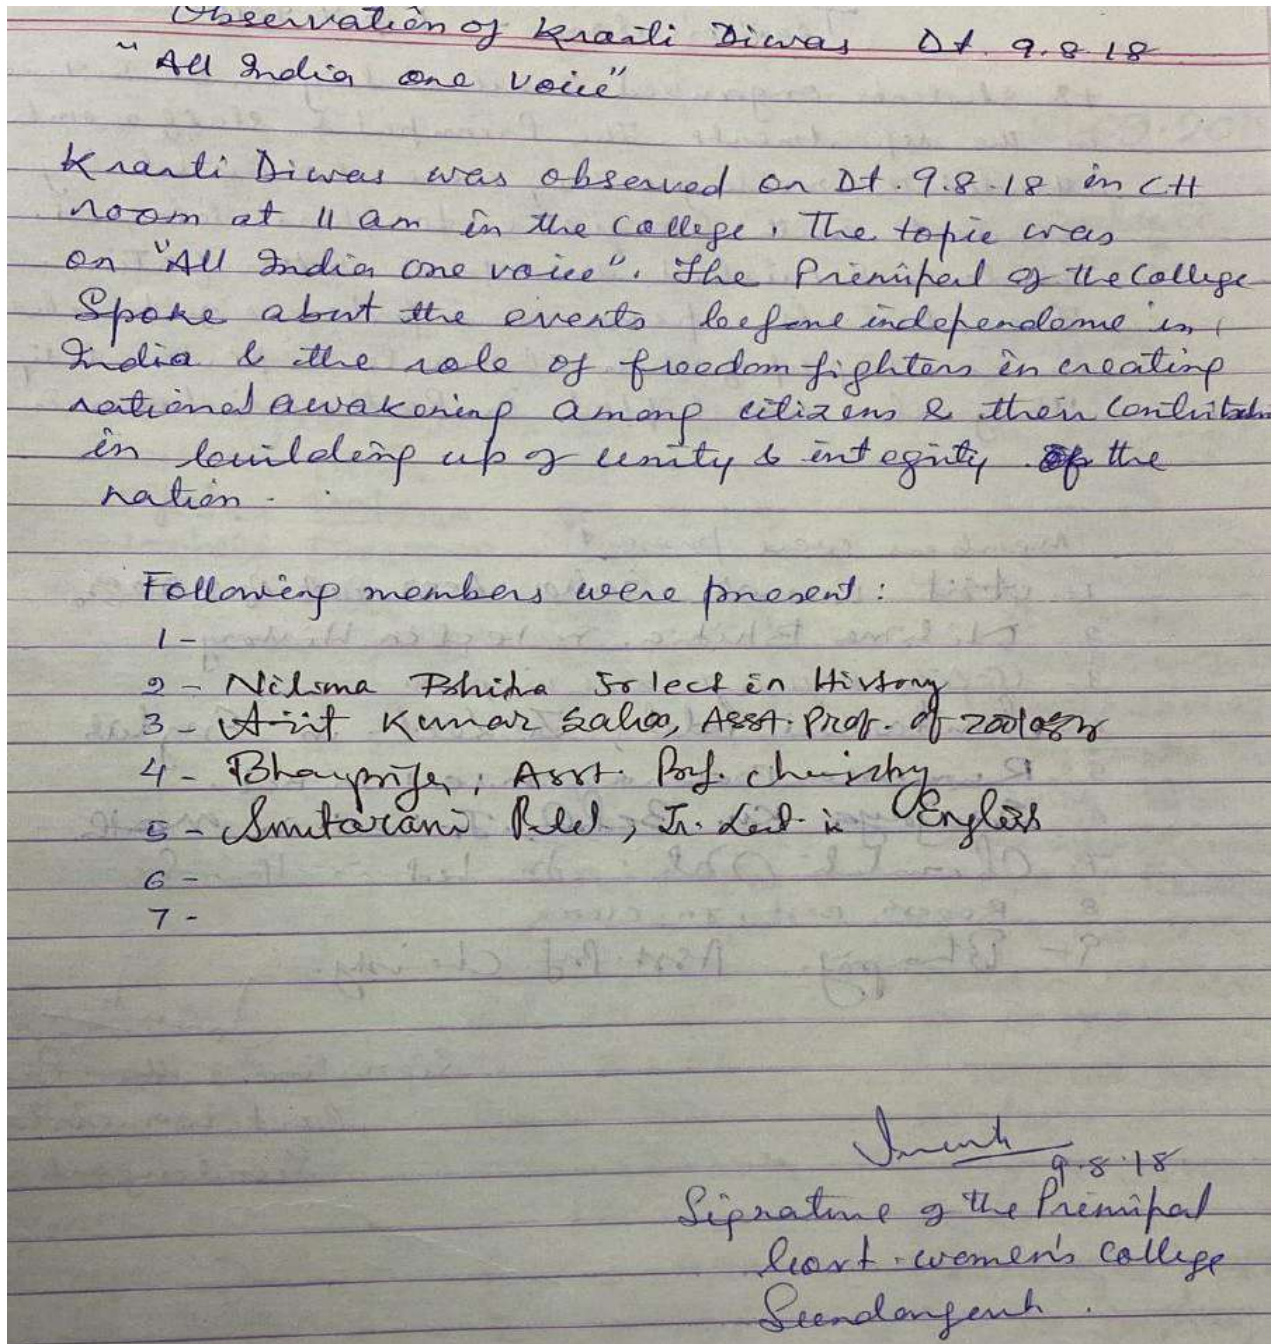 Observation of Kranti Diwas Dt. 9.8.18
"All India one voice"
Kranti Diwas was observed on Dt. 9.8.18 in CH
room at 11 am in the College. The topic was
on "All India one voice". The Principal of the College
Spoke about the events before independence in
India & the role of freedom fighters in creating
national awakening among citizens & their Contribution
in building up of unity & integrity of the
nation.
Following members were present:
1-
2- Nilima Sr lect in History
3- Ajit Kumar Sahoo, Asst. Prof. of Zoology
4- Asst. Prof. chemistry
5- Smitarani Patel, Jr. Lect. in English
6-
7-
9.8.18
Signature of the Principal
Govt. women's College
Sundargarh.